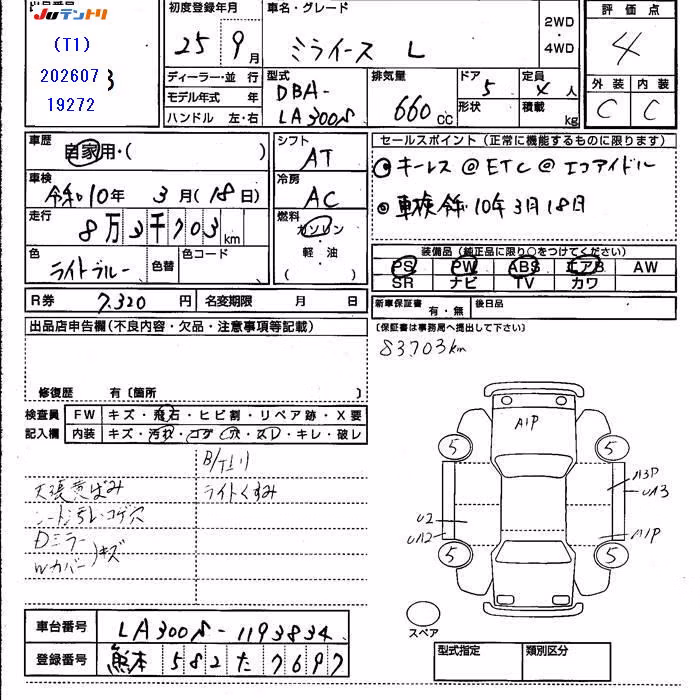 JUテントリ
(T1)
202607
19272
3
初度登録年月
25 9月
車名・グレード
ミライース L
2WD
・
4WD
評価点
4
外装 内装
C C
ディーラー・並行
モデル年式 年
ハンドル 左・右
型式
DBA-
LA300S
排気量
660cc
ドア
5
形状
定員
4人
積載
kg
車歴
自家用・( )
車検
令和10年 3月(18日)
走行
8万3千703km
色
ライトブルー
色替
色コード
シフト
AT
冷房
AC
燃料
ガソリン
・
軽・油
( )
セールスポイント(正常に機能するものに限ります)
◎キーレス◎ETC◎エコアイドル
◎車検令和10年3月18日
装備品(純正品に限り○をつけてください)
PS PW ABS エアB AW
SR ナビ TV カワ
R券 7,320円 名変期限 月 日
新車保証書 有・無 後日品
(保証書は事務局へ提出して下さい)
83703km
出品店申告欄(不良内容・欠品・注意事項等記載)
修復歴 有〔箇所 〕
検査員 FW キズ・飛石・ヒビ割・リペア跡・X要
記入欄 内装 キズ・汚れ・コゲ・穴・スレ・キレ・破レ
天張黄ばみ
シート汚れコゲ穴
Dミラー
Wカバー)キズ
ライトくすみ
A1P
5
5
A3P
UA3
U2
UA2
A1P
5
5
スペア
車台番号 LA300S-1193834
登録番号 熊本 582 た 7697
型式指定 類別区分